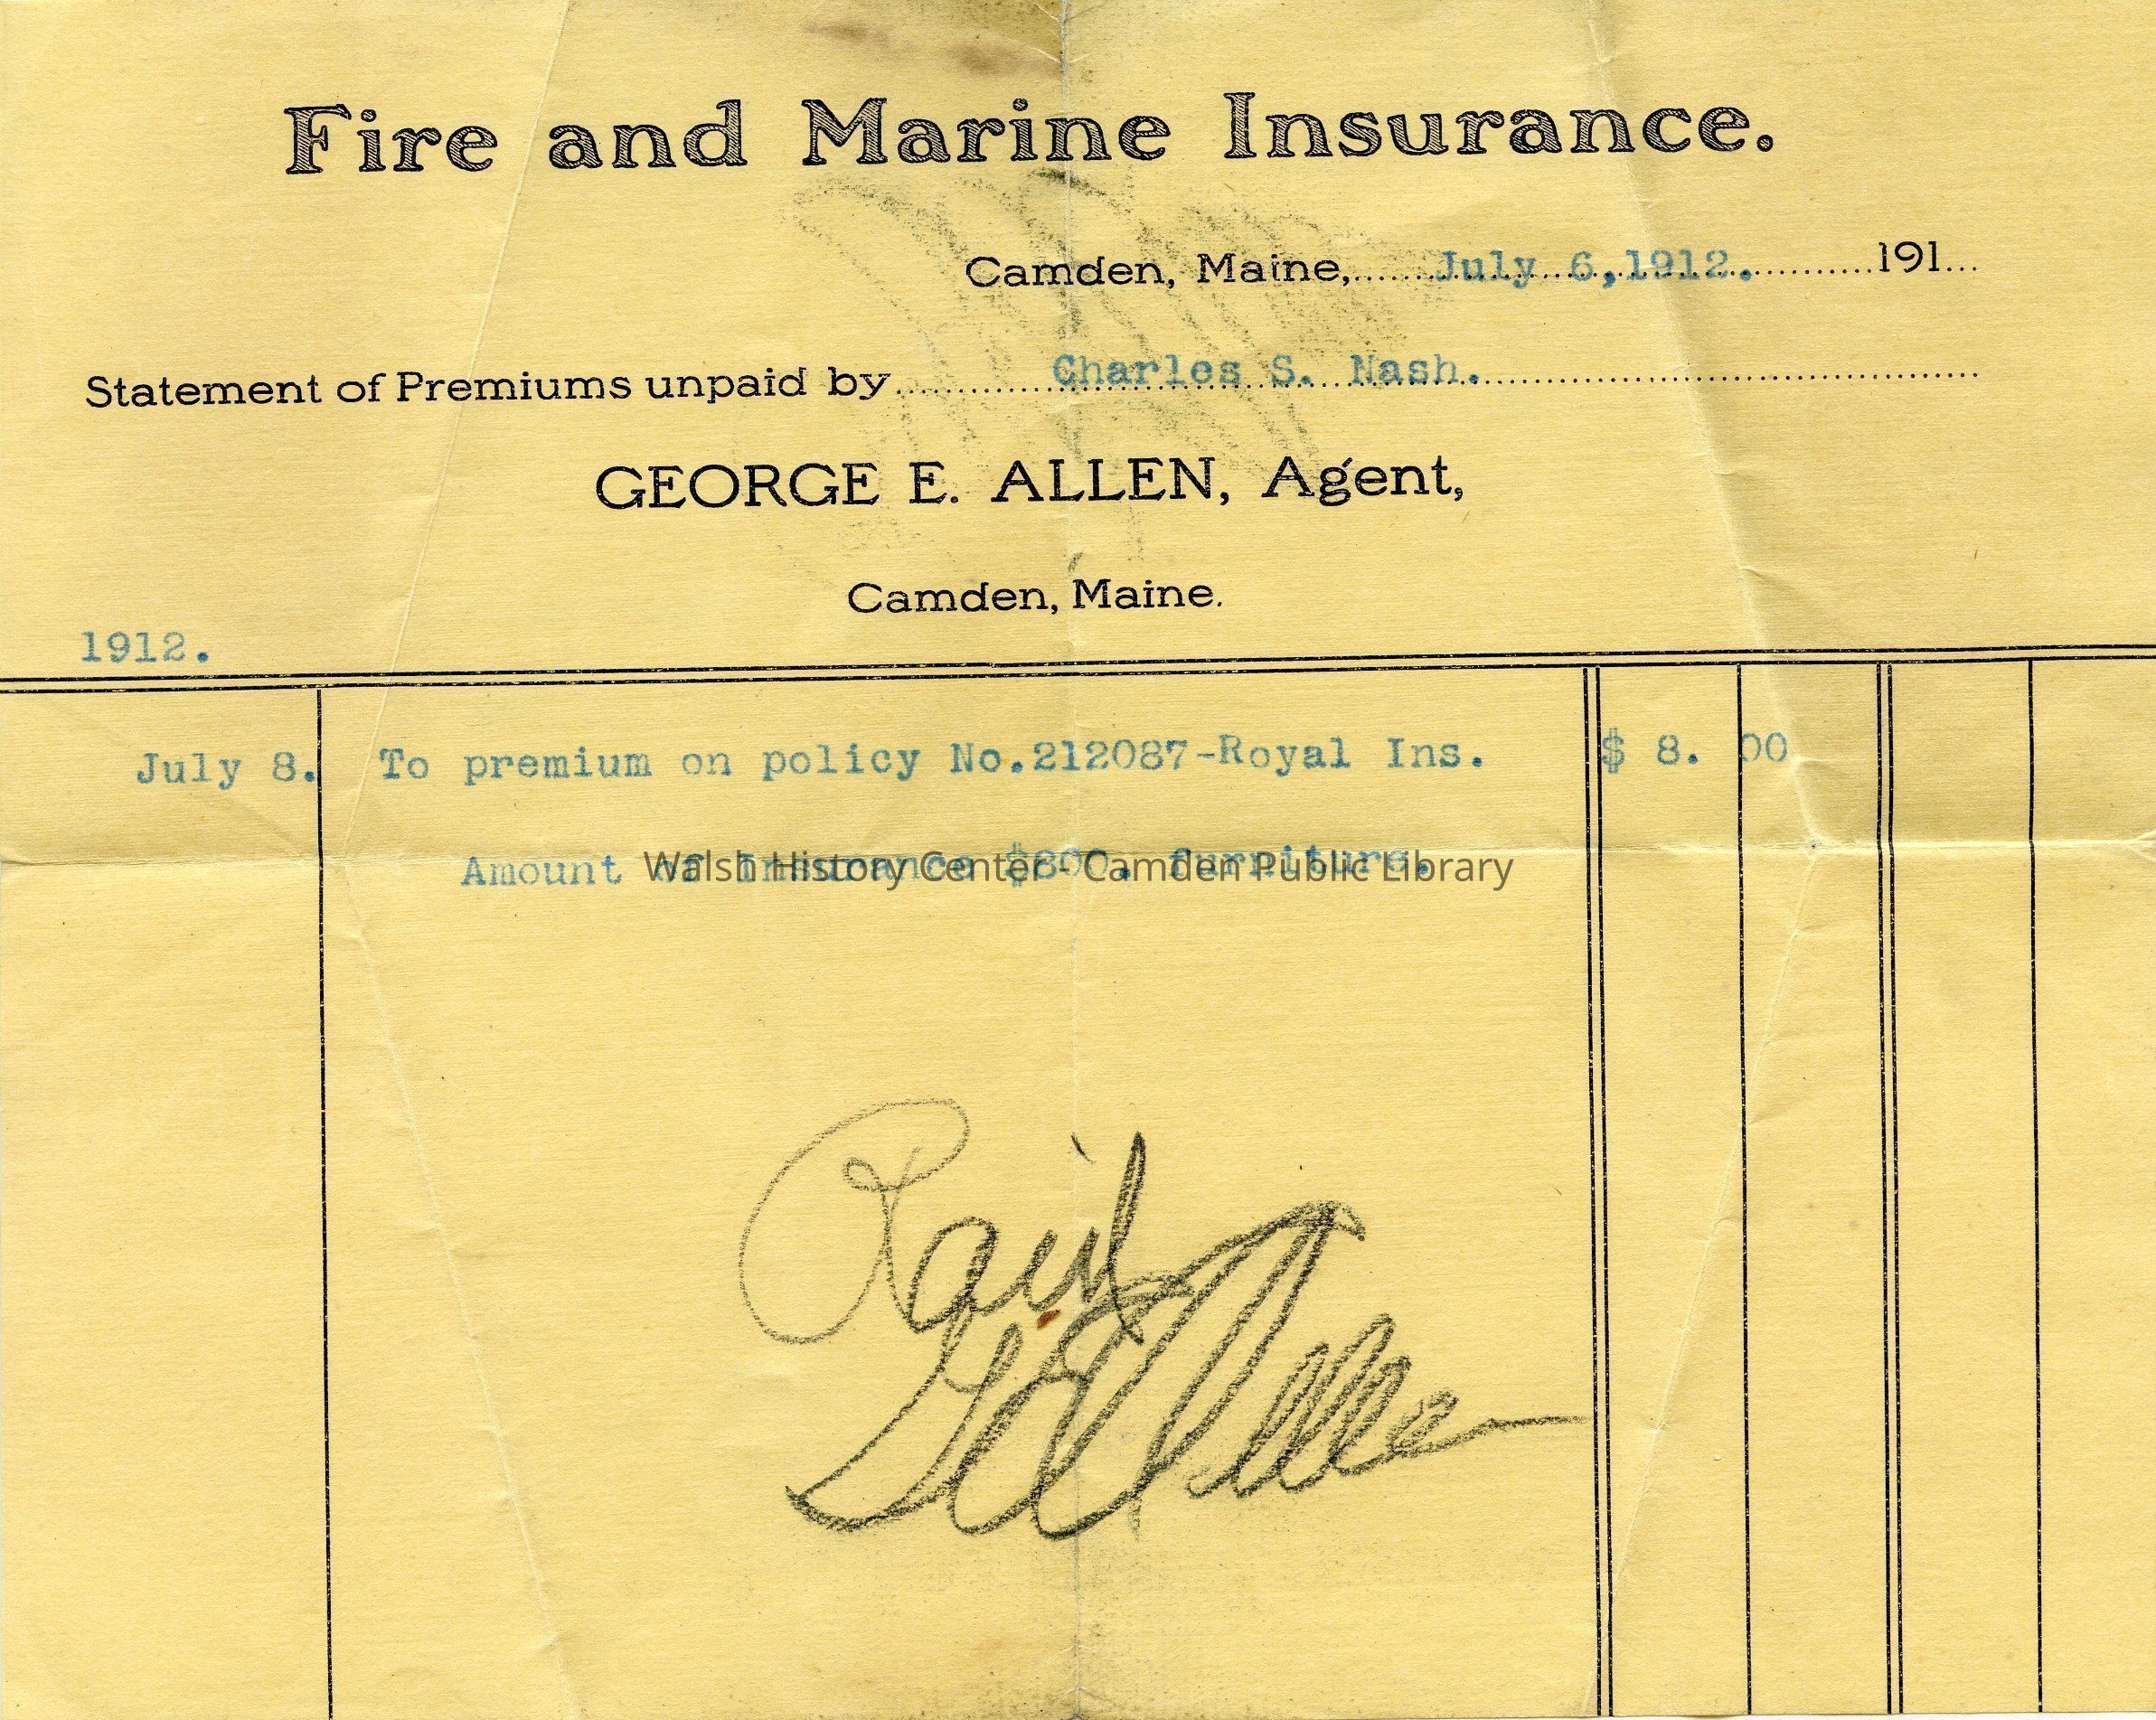 Fire and Marine Insurance.
Camden, Maine, July 6,1912. 191
Statement of Premiums unpaid by Charles S. Nash.
GEORGE E. ALLEN, Agent,
Camden, Maine.
1912.
July 8. To premium on policy No.212087-Royal Ins. $ 8. 00
Amount of Insurance $800. furniture.
Walsh History Center - Camden Public Library
Paid
Geo E Allen